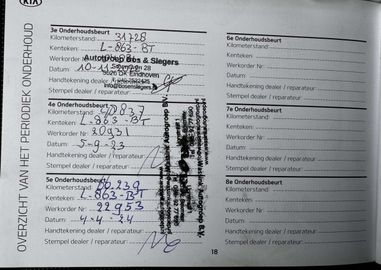 KIA
OVERZICHT VAN HET PERIODIEK ONDERHOUD
3e Onderhoudsbeurt
Kilometerstand: 31728
Kenteken: L-863-BT
Werkorder Nr:
Autogroep Bos & Slegers
Datum 10-11-
5626 DK Eindhoven
Handtekening dealer / reparateur:
Stempel dealer / reparateur:
info@bosenslegers.nl
4e Onderhoudsbeurt
Kilometerstand:
Kenteken L-863-BT
Werkorder Nr: 20931
Datum: 5-9-23
Handtekening dealer / reparateur:
Stempel dealer / reparateur:
5e Onderhoudsbeurt
Kilometerstand: 60.239
Kenteken: L-863-BT
Werkorder Nr: 22953
Datum: 4-4-24
Handtekening dealer / reparateur:
Stempel dealer / reparateur:
6e Onderhoudsbeurt
Kilometerstand:
Kenteken:
Werkorder Nr:
Datum:
Handtekening dealer / reparateur:
Stempel dealer / reparateur:
7e Onderhoudsbeurt
Kilometerstand:
Kenteken:
Werkorder Nr:
Datum:
Handtekening dealer / reparateur:
Stempel dealer / reparateur:
8e Onderhoudsbeurt
Kilometerstand:
Kenteken:
Werkorder Nr:
Datum:
Handtekening dealer / reparateur:
Stempel dealer / reparateur:
18